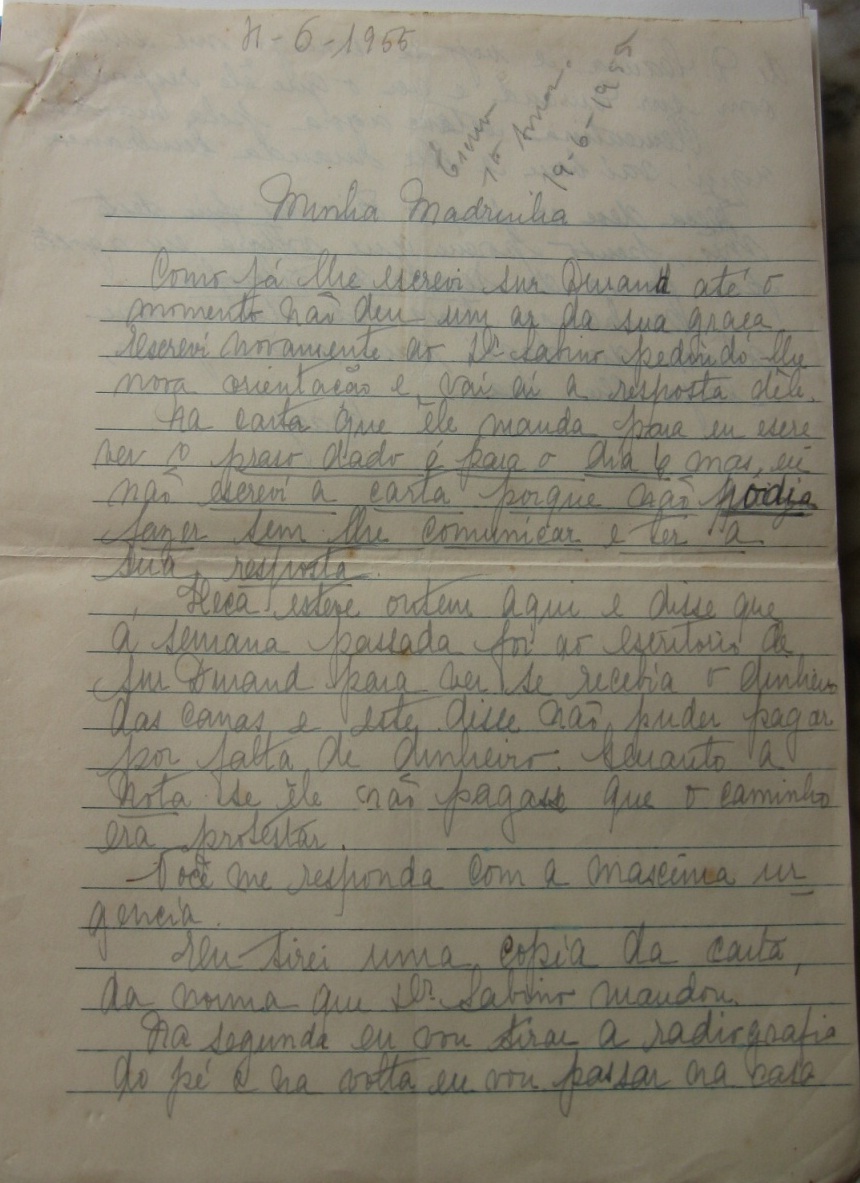 11-6-1955
19-6-1955
Minha Madrinha
Como já lhe escrevi snr Durand até o
momento não deu um ar da sua graça,
escrevi novamente ao Dr. Sabino pedindo lhe
nova orientação e, vai ai a resposta dêle.
Na carta que êle manda para eu escre
ver o praso dado é para o dia 6 mas, eu
não escrevi a carta porque não pódia
fazer sem lhe comunicar e ter a
sua resposta.
esteve ontem aqui e disse que
a semana passada foi ao escritorio de
snr Durand para ver se recebia o dinheiro
das canas e este disse não puder pagar
por falta de dinheiro. Quanto a
nota se êle não pagasse que o caminho
era protestar.
Você me responda com a mascima ur
gencia.
Eu tirei uma copia da carta,
da norma que Dr. Sabino mandou.
Na segunda eu vou tirar a radiografia
do pé e na volta eu vou passar na casa